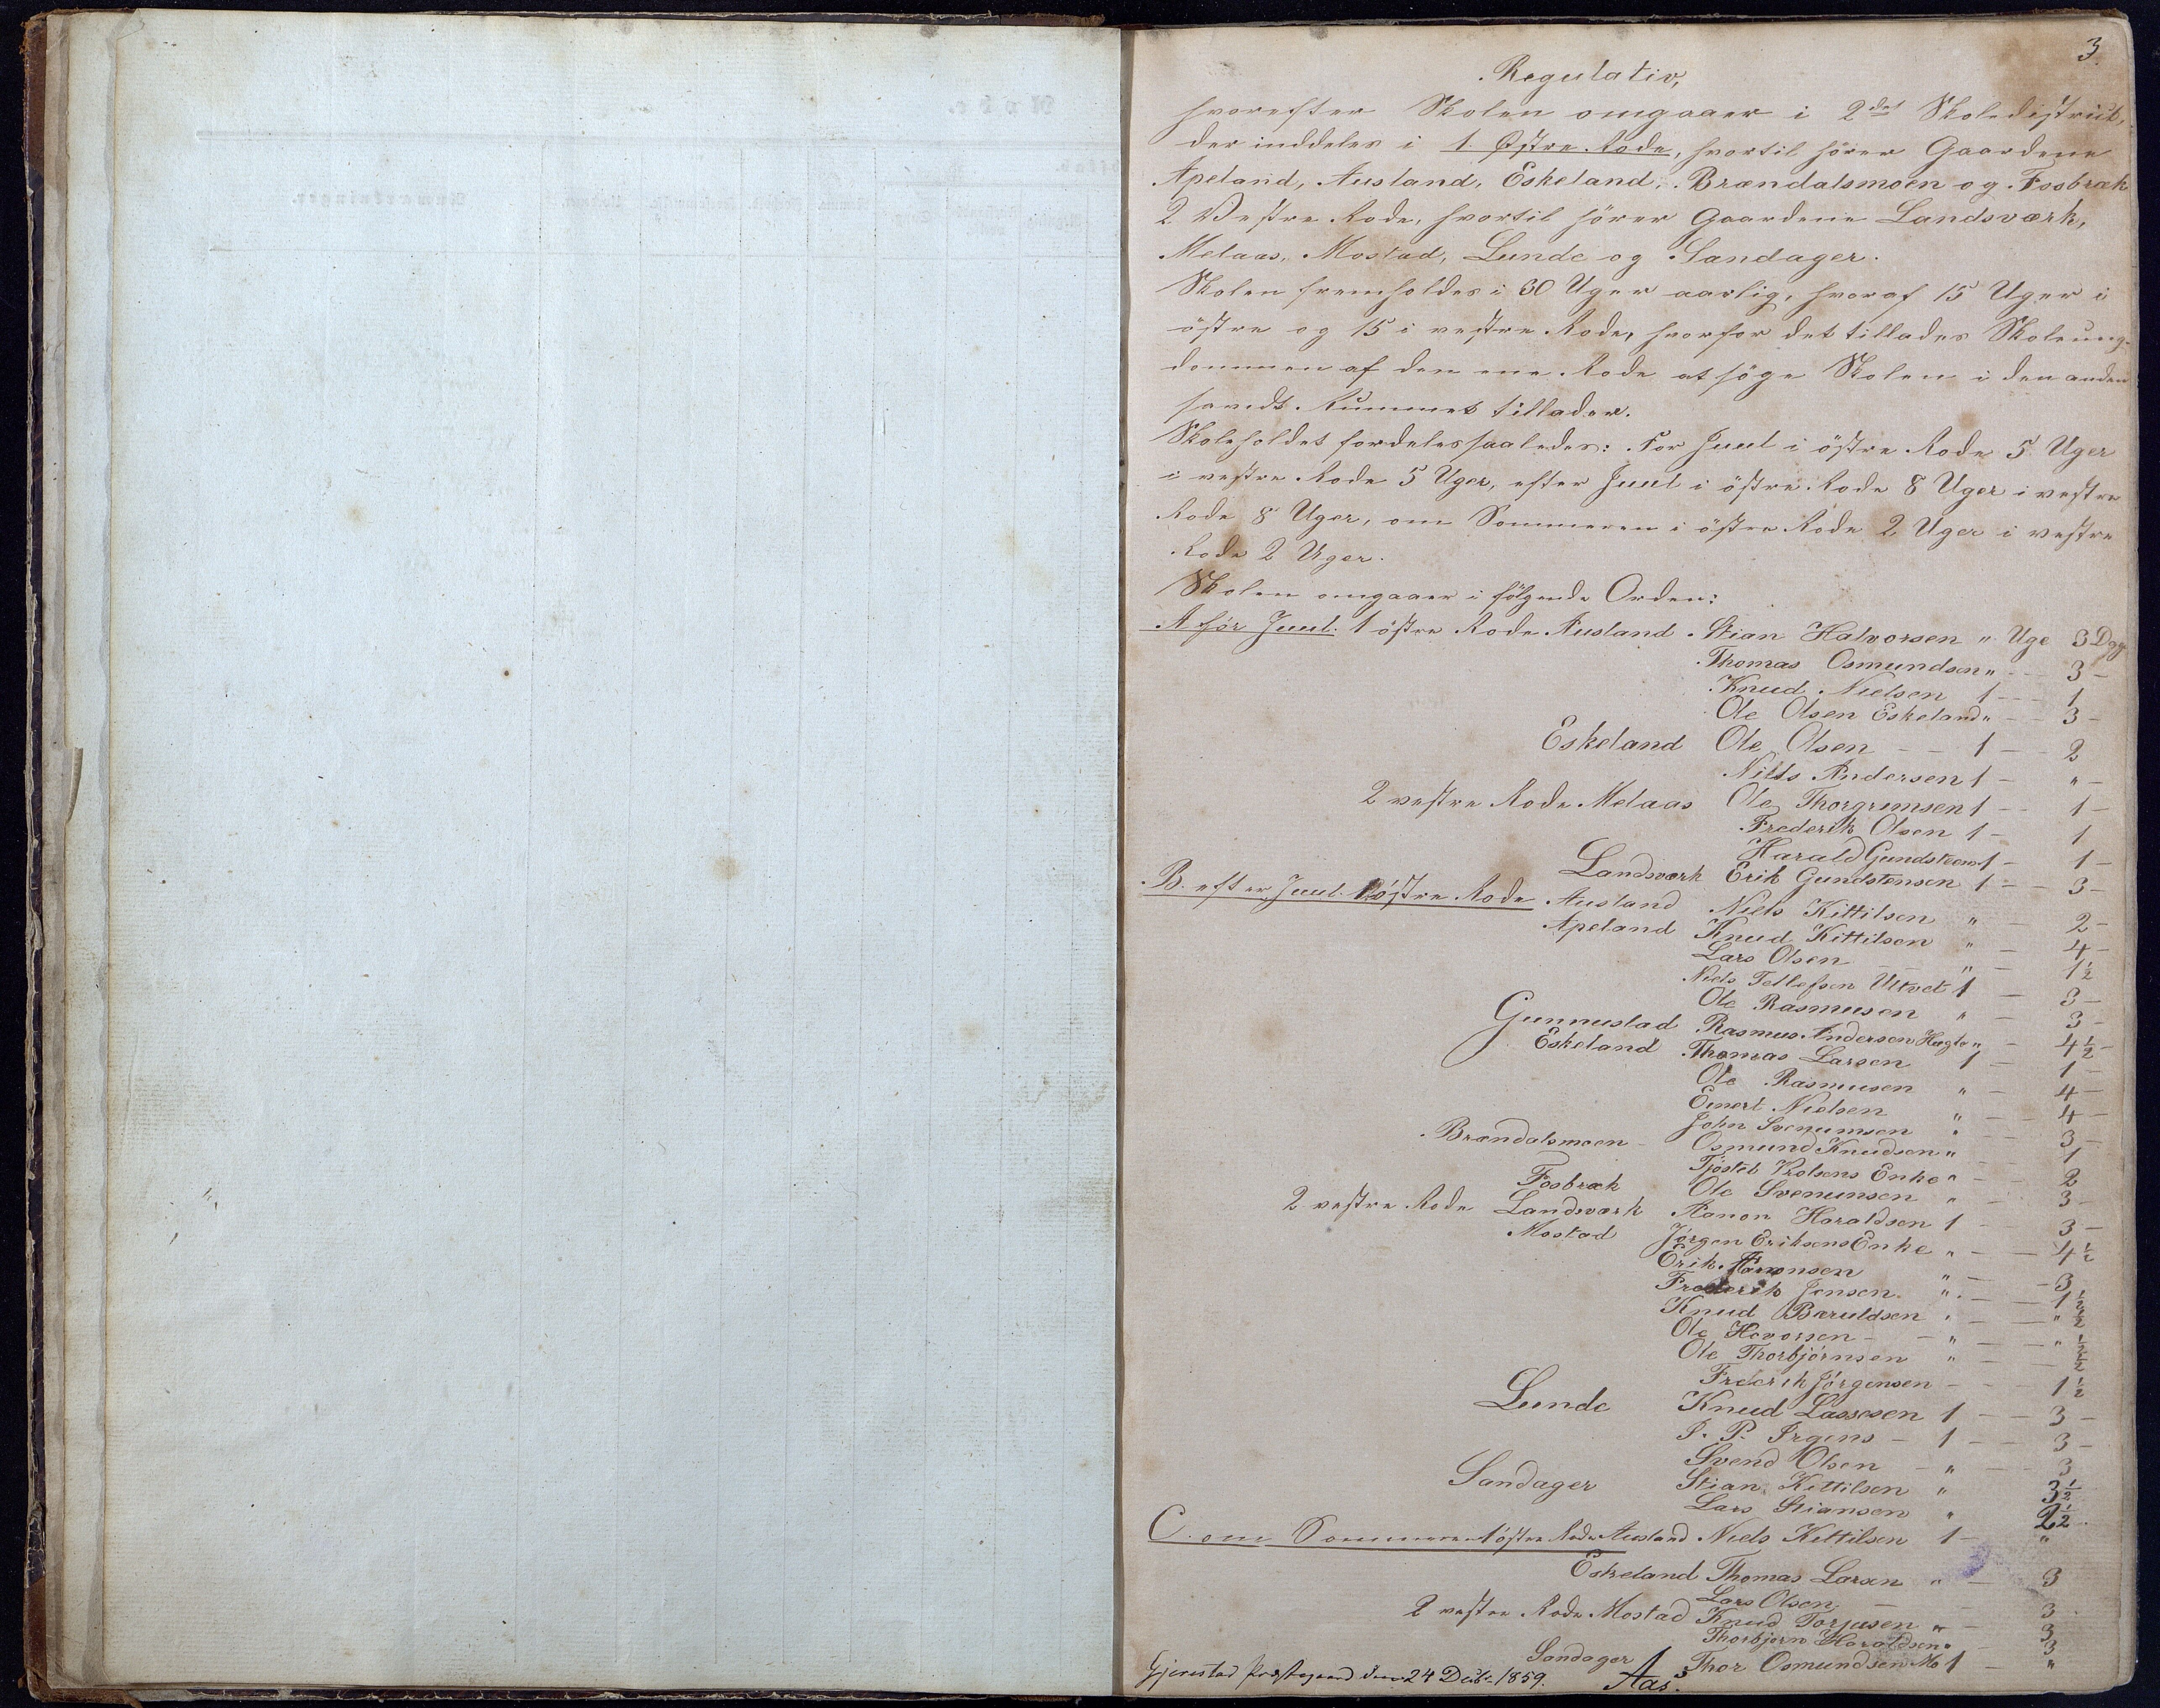 3.
Regulativ,
hvorefter Skolen omgaaer i 2det Skoledistrict,
der inddeles i 1. Østre Rode, hvortil hörer Gaardene
Apeland, Ausland, Eskeland, Brændalsmoen og Fosbræk
2 Vestre Rode, hvortil hörer Gaardene Landsværk,
Melaas, Mostad, Lunde og Sandager.
Skolen fremholdes i 30 Uger aarlig, hvoraf 15 Uger i
östre og 15 i vestre Rode, hvorfor det tillades Skoleung-
dommen af den ene Rode at söge Skolen i den anden
saavidt Rummet tillader.
Skoleholdet fordeles saaledes: For Juul i östre Rode 5 Uger
i vestre Rode 5 Uger, efter Juul i östre Rode 8 Uger i vestre
Rode 8 Uger, om Sommeren i östre Rode 2 Uger i vestre
Rode 2 Uger.
Skolen omgaaer i fölgende Orden:
A för Juul. 1 östre Rode Ausland Stian Halvorsen " Uge 3 Dag
Thomas Osmundsen " - 3 -
Knud Nielsen 1 - 1
Ole Olsen Eskeland " - 3 -
Eskeland Ole Olsen - 1 - 2
Niels Andersen 1 - " -
2 vestre Rode Melaas Ole Thorgrimsen 1 - 1 -
Frederik Olsen 1 - 1
Harald Gundstens 1 - 1 -
Landsværk Erik Gundstensen 1 - 3 -
B. efter Juul. 1 östre Rode Ausland Niels Kittilsen " 2 -
Apeland Knud Kittilsen " - 4 -
Lars Olsen " - 1½
Niels Tellefsen Ultvet 1 - 3 -
Ole Rasmusen " - 3 -
Gunnustad Rasmus Andersen " - 4½ -
Eskeland Thomas Larsen 1 1 -
Ole Rasmusen " - 4 -
Einert Nielsen " - 4 -
John Svenumsen " - 3 -
Brændalsmoen - Osmund Knudsen " - 1
Tjöstel Enke " - 2
Fosbræk Ole Svenumsen " - 3 -
2 vestre Rode Landsværk Aanon Haraldsen 1 - 3 -
Mostad Jörgen Eriksens Enke " - 4½
Erik Aanonsen " - 3
Frederik Jensen " - 1½
Knud Baruldsen " - " ½
Ole Hovorsen - " - " ½
Ole Thorbjörnsen " - ½
Frederik Jörgensen - 1½
Lunde Knud Lassesen 1 - 3 -
P. Irgens - 1 - 3 -
Svend Olsen - " - 3
Sandager Stian Kittilsen " 3½
Lars Stiansen " 2½
C. om Sommeren 1 östre Rode Ausland Niels Kittilsen 1 - "
Eskeland Thomas Larsen " - 3
Lars Olsen - 3
2 vestre Rode Mostad Knud Torjusen " - 3
Thorbjørn Haraldsen " 3
Sandager Thor Osmundsen Mo 1 "
Gjerestad Præstegaard den 24 Decbr 1859. Aas.